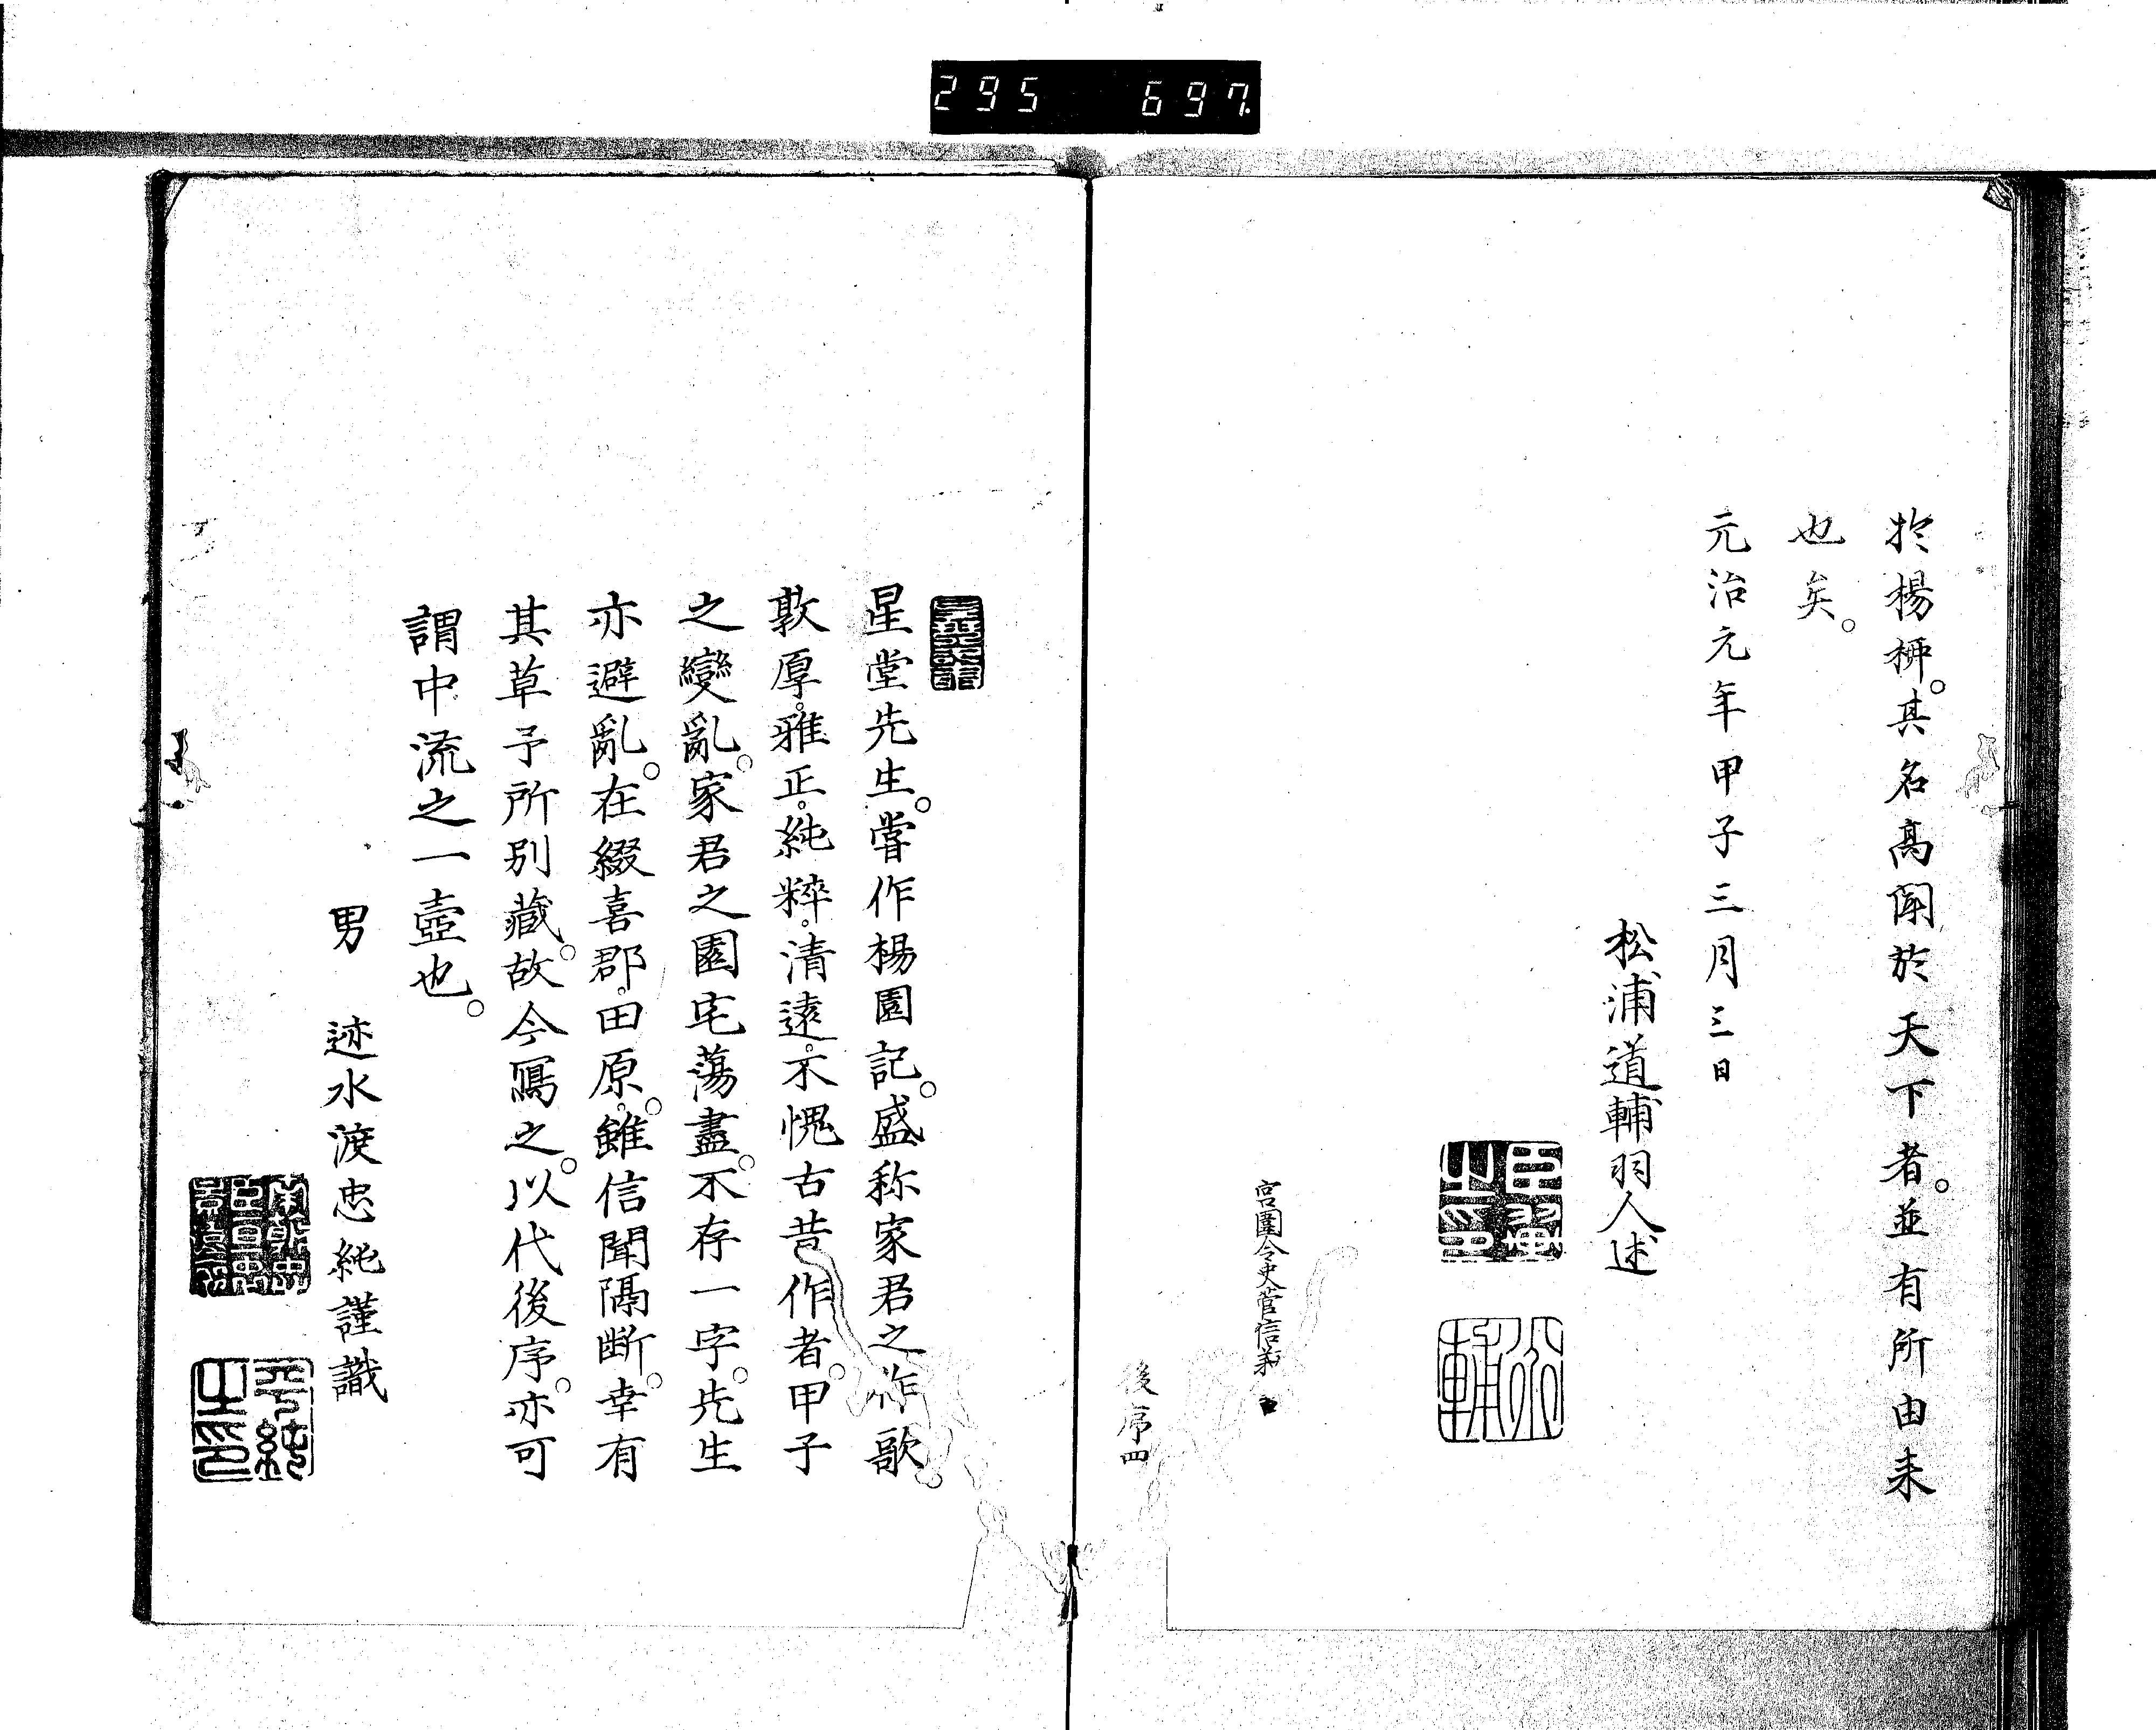 295 697.
於楊柳。其名高聞於天下者。並有所由来
也矣。
元治元年甲子三月三日
松浦道輔羽人述
道輔
宮圍令史菅信
後序四
星堂先生。嘗作楊園記。盛称家君之作歌。
敦厚。雅正。純粋。清遠。不愧古昔作者。甲子
之變亂。家君之園宅蕩盡。不存一字。先生
亦避亂。在綴喜郡。田原。雖信聞隔断。幸有
其草予所別藏。故今寫之。以代後序。亦可
謂中流之一壺也。
男 迹水渡忠純謹識
平純之印